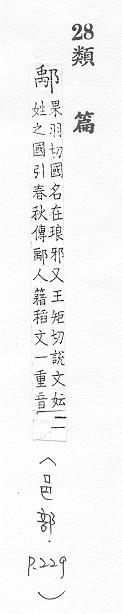 28類篇
鄅
果羽切國名在琅邪又王矩切說文妘
姓之國引春秋傳鄅人籍稻文一重音一
(邑部.
P.229)